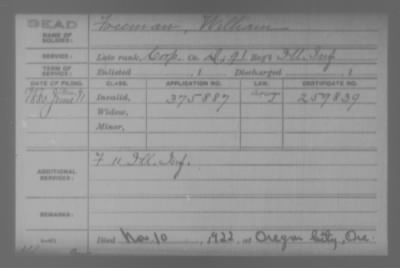 DEAD
NAME OF SOLDIER:
Freeman, William
SERVICE:
Late rank, Corp. Co. D, 91 Reg't Ill. Inf
TERM OF SERVICE:
Enlisted , 1 Discharged , 1
DATE OF FILING. CLASS. APPLICATION NO. LAW. CERTIFICATE NO.
1880 June 11 Invalid, 375887 259839
Widow,
Minor,
ADDITIONAL SERVICES:
F 11 Ill. Inf.
REMARKS:
Died Nov. 10, 1922, at Oregon City, Ore.